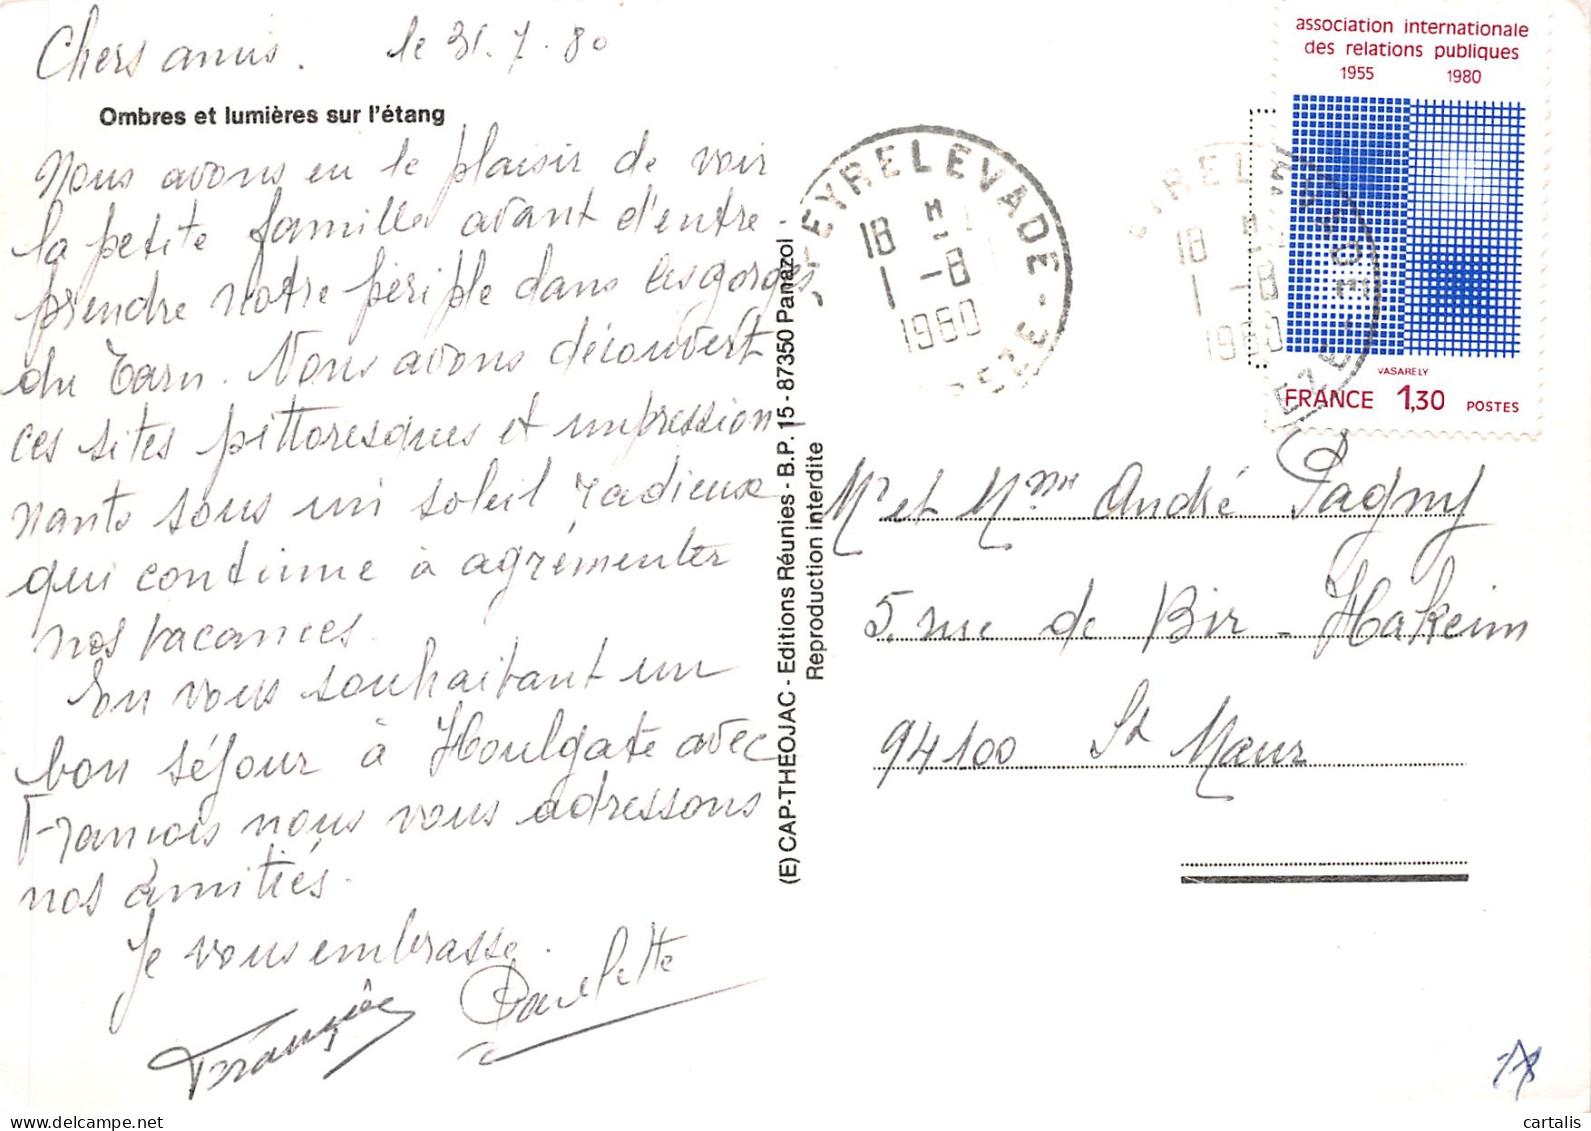 Chers amis. le 31.7.80
Ombres et lumières sur l'étang
Nous avons eu le plaisir de voir
la petite famille avant d'entre-
prendre notre périple dans les gorges
du Tarn. Nous avons découvert
ces sites pittoresques et impression-
nants sous un soleil radieux
qui continue à agrémenter
nos vacances.
En vous souhaitant un
bon séjour à Houlgate avec
François nous vous adressons
nos amitiés.
Je vous embrasse.
Paulette
(E) CAP-THEOJAC - Editions Réunies - B.P. 15 - 87350 Panazol -
Reproduction interdite
PEYRELEVADE - 
18 H
1 -8
1980
CORREZE
association internationale
des relations publiques
1955 1980
VASARELY
FRANCE 1,30 POSTES
18 H
1 -8
1980
Mr et Mme André Pagny
5. rue de Bir-Hakeim
94100 St Maur
cartalis